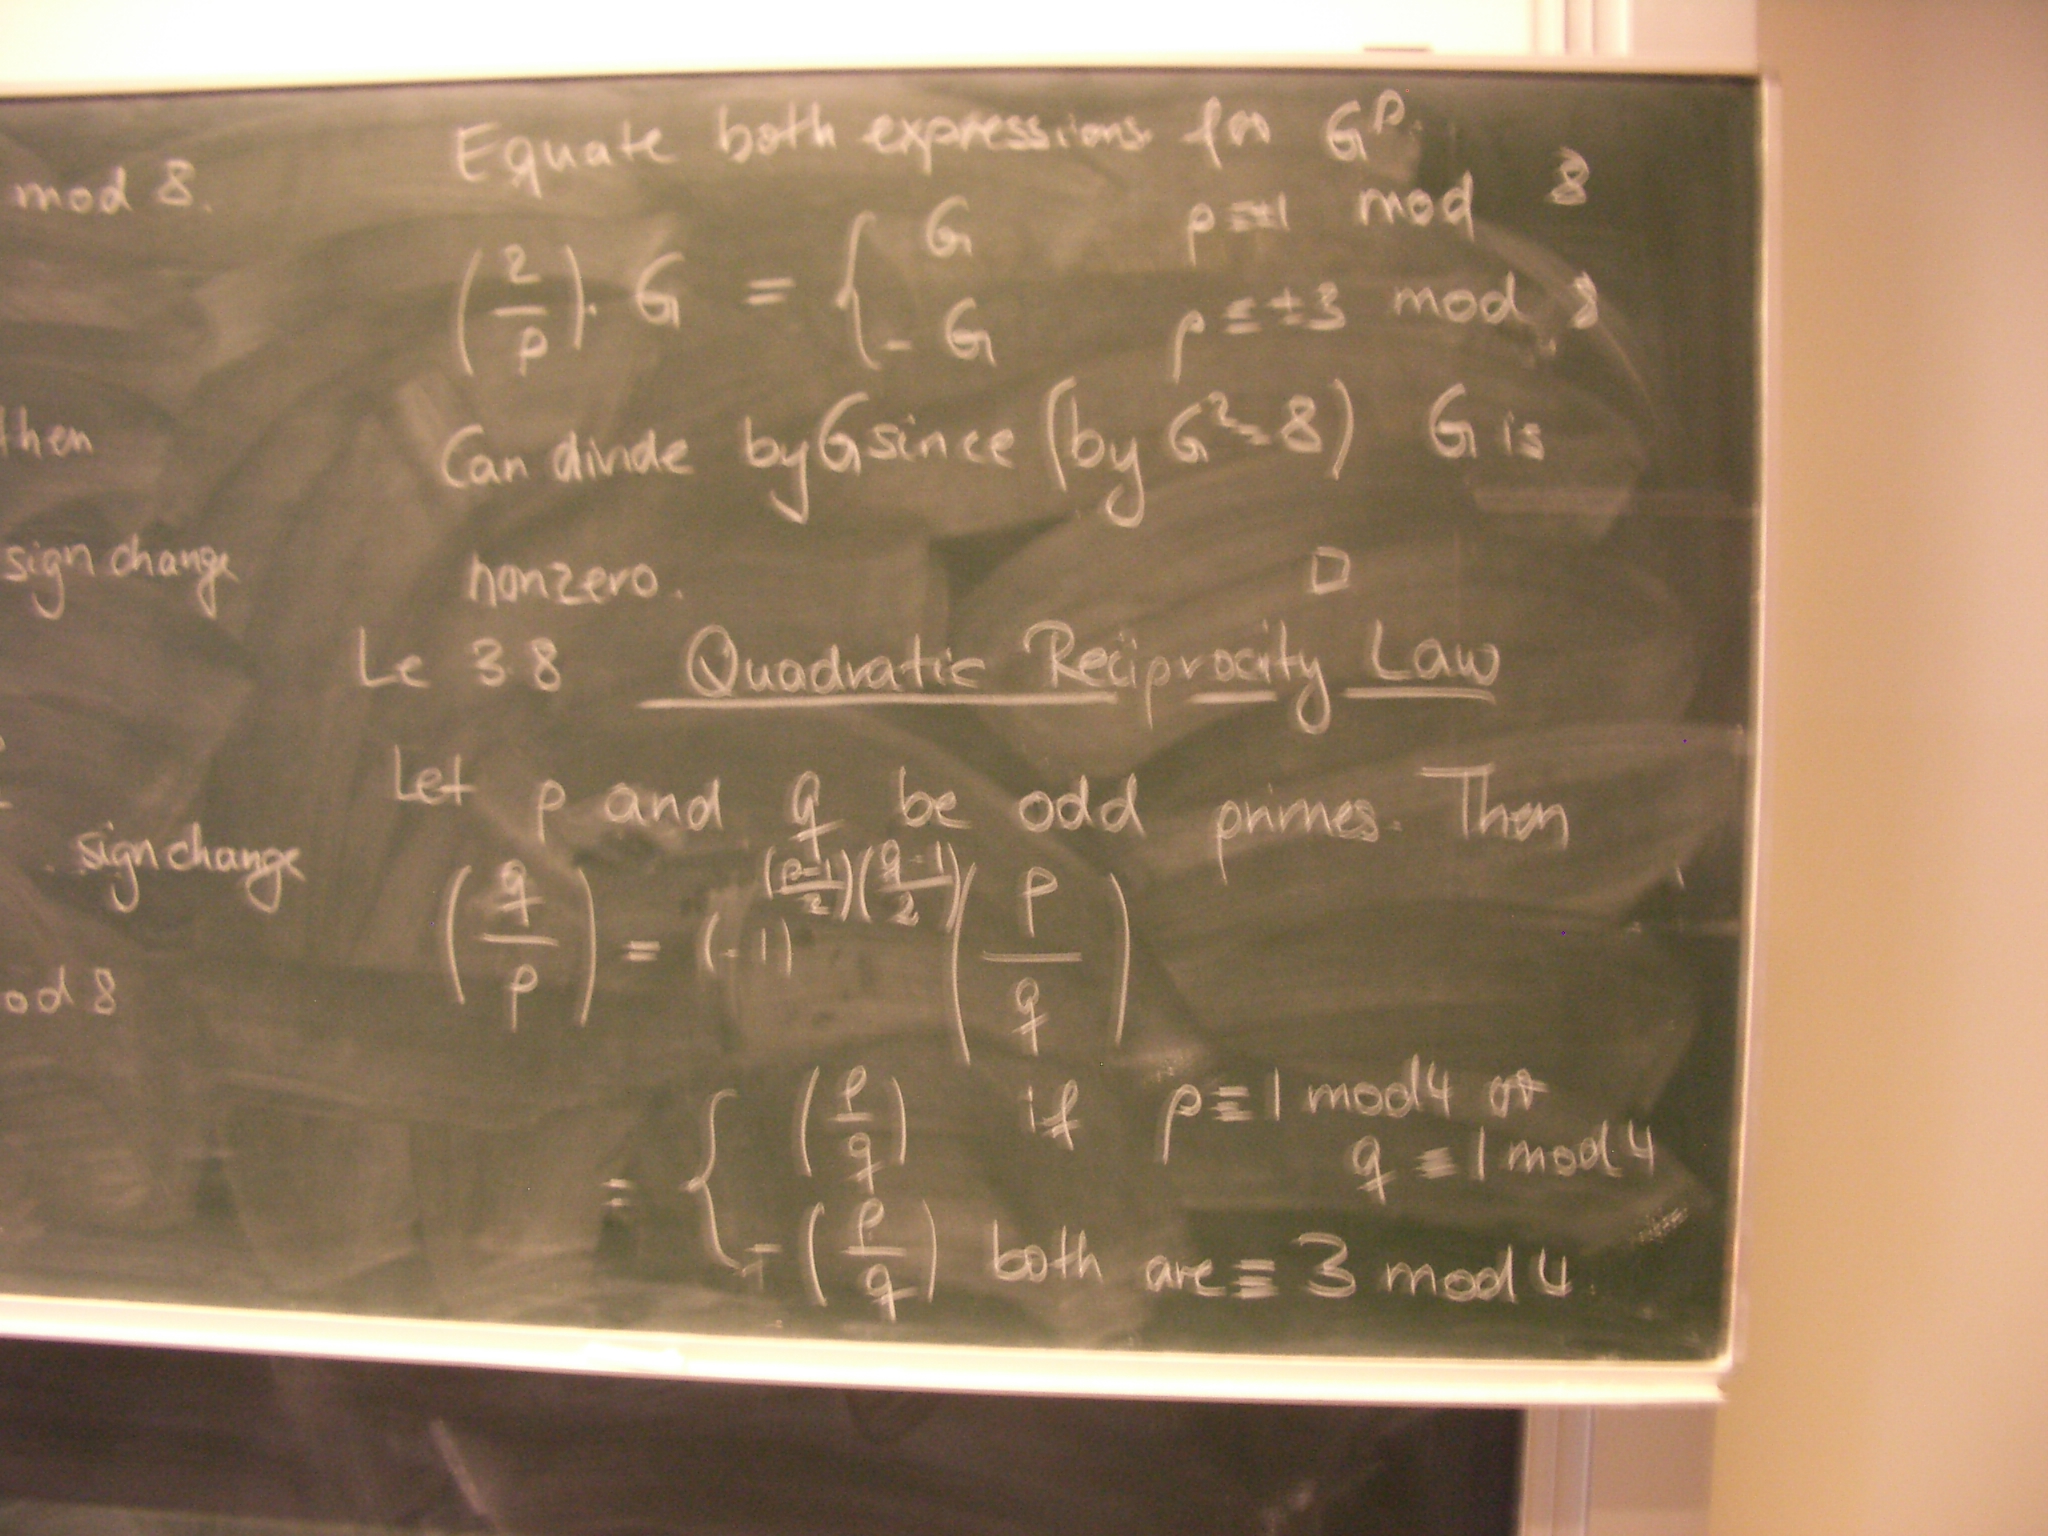 mod 8.
then
sign change
sign change
od 8
Equate both expressions for G^p.
(2/p) · G = { G p ≡ ±1 mod 8
- G p ≡ ±3 mod 8
Can divide by G since (by G² = 8) G is
nonzero. □
Le 3.8 Quadratic Reciprocity Law
Let p and q be odd primes. Then
(q/p) = (-1)^((p-1)/2)((q-1)/2) (p/q)
= { (p/q) if p ≡ 1 mod 4 or
q ≡ 1 mod 4
- (p/q) both are ≡ 3 mod 4.